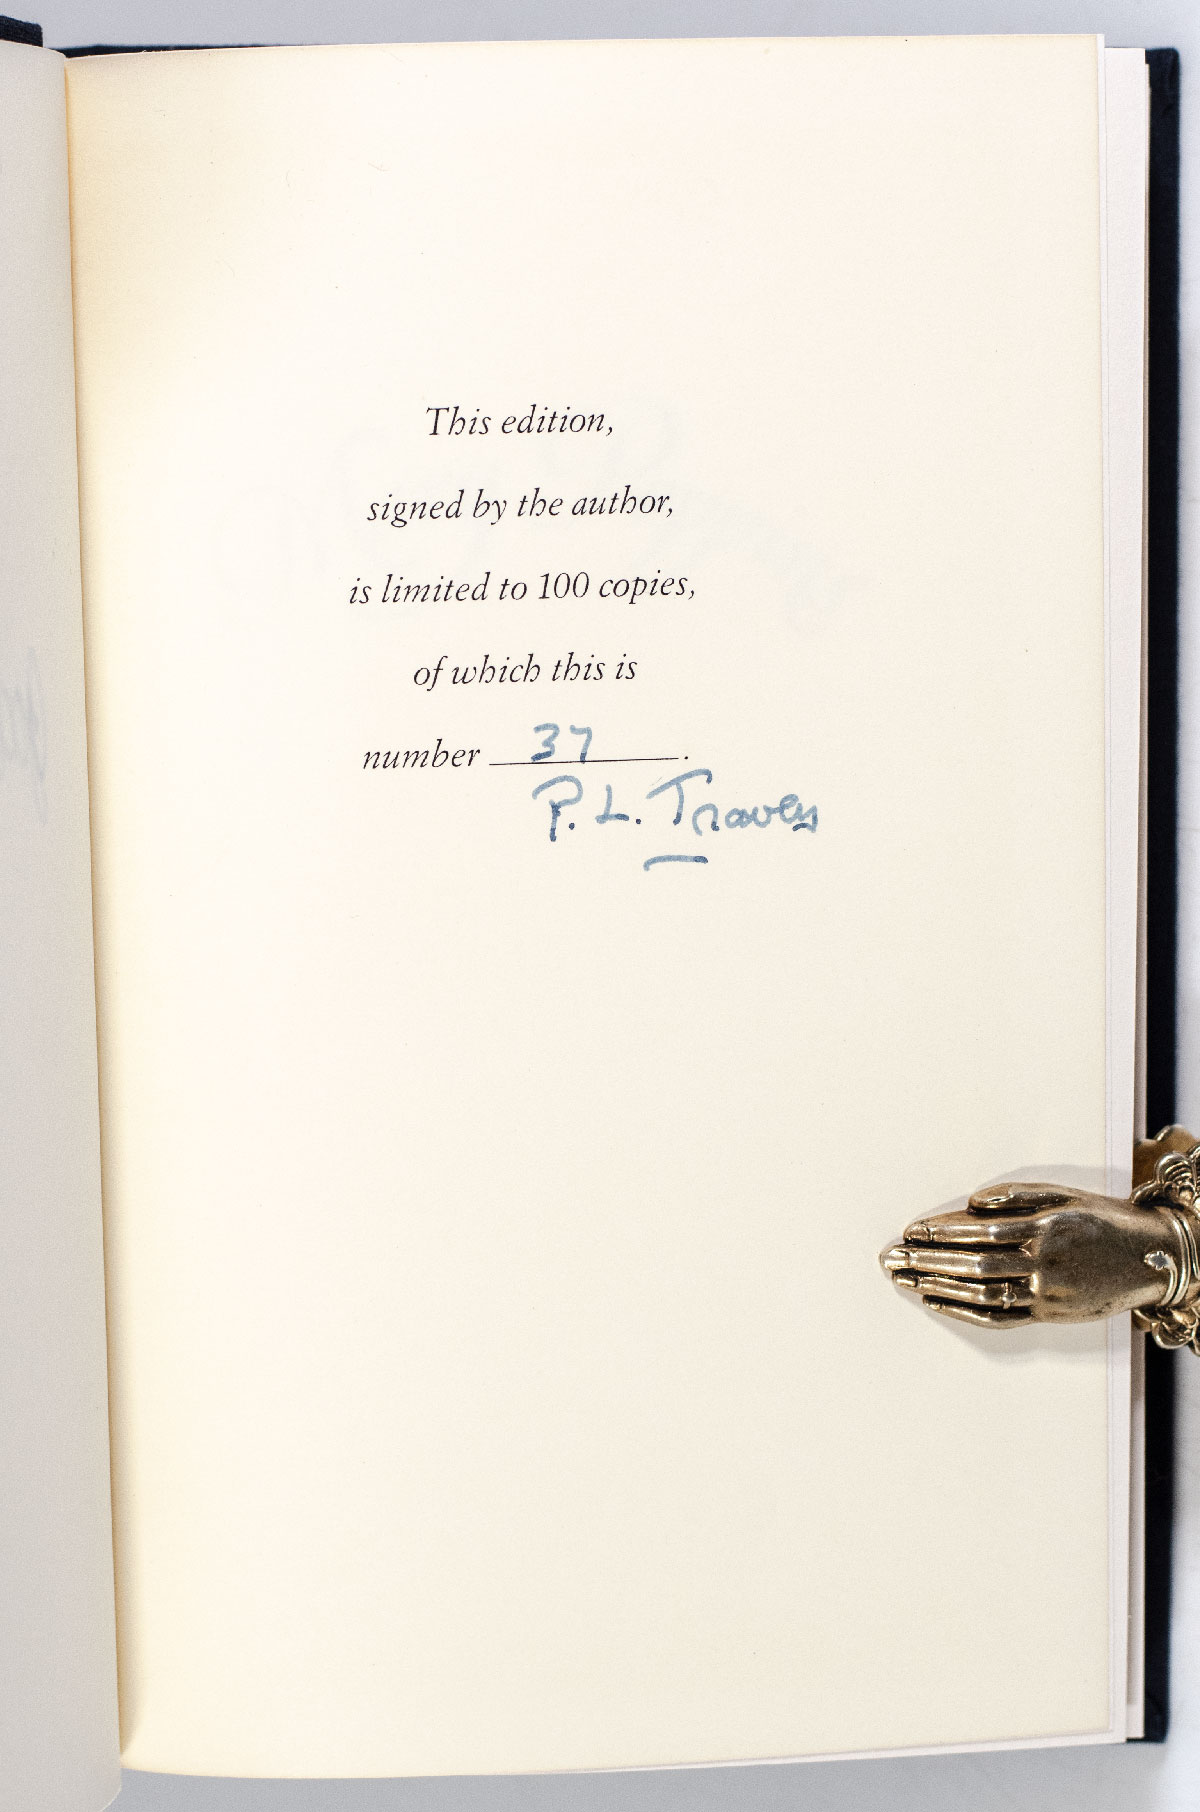 This edition,
signed by the author,
is limited to 100 copies,
of which this is
number 37.
P. L. Travers